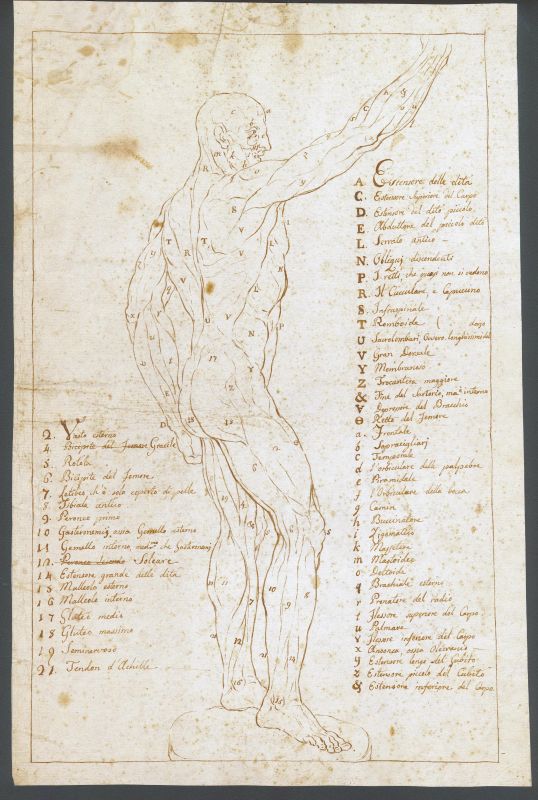 A. Estensore delle dita
C. Estensore Superiore del Carpo
D. Estensore del dito piccolo.
E. Abduttore del piccolo dito
L. Serrato antico –
N. Obliqui discendenti
P. I retti, che quasi non si vedono
R. Il Cucculare, o Capuccino
S. Infraspinale
T. Romboide
U. Sacrolombari, Ovvero
V. Gran Dorsale
Y. Membranoso
Z. Trocantere maggiore
& Fine del Sartorio, interno
Depressore del Bracchio
Θ Retto del femore
a. Frontale
b Sopracigliari
c Temporale
d l'orbiculare delle palpebre
e Piramidale
f l'Orbiculare della bocca
g Canin
h Buccinatore
i Zigomatico
k Massetere
m Mastoideo
o Deltoide
q Brachiale esterno
r Pronatore del radio
s flessore superiore del Carpo.
u Palmare
v flessore inferiore del Carpo
x Anconeo, ossia Olecranio –
y Estensore longo del Gubito
z Estensore piccolo del Cubito
& Estensore inferiore del Carpo.
2. Vasto esterno
4. Bicipite del femore Gracile
5. Rotola
6. Bicipite del femore
7. è solo coperto di pelle
8. Tibiale antico
9. Peroneo primo
10 Gastronemis, ossia Gemello esterno
11 Gemello interno,
12. Peroneo secondo Soleare
14 Estensore grande delle dita
15 Malleolo esterno
16 Malleolo interno
17 Gluteo medio
18 Gluteo massimo
19 Seminervoso
21. Tendon d'Achille